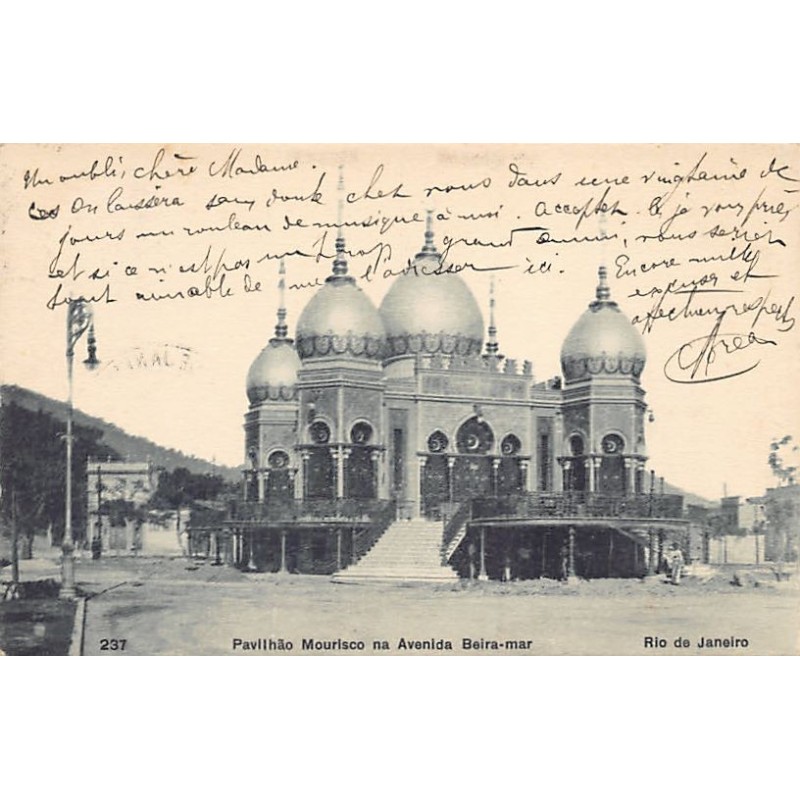 Un oubli, chère Madame.
On laissera sans doute chez nous dans une vingtaine de
jours un rouleau de musique à moi. Acceptez je vous prie,
et si ce n'est pas un trop grand ennui, vous seriez
aimable de me l'adresser ici.
Encore mille
excuses et
affection respect
237
Pavilhão Mourisco na Avenida Beira-mar
Rio de Janeiro